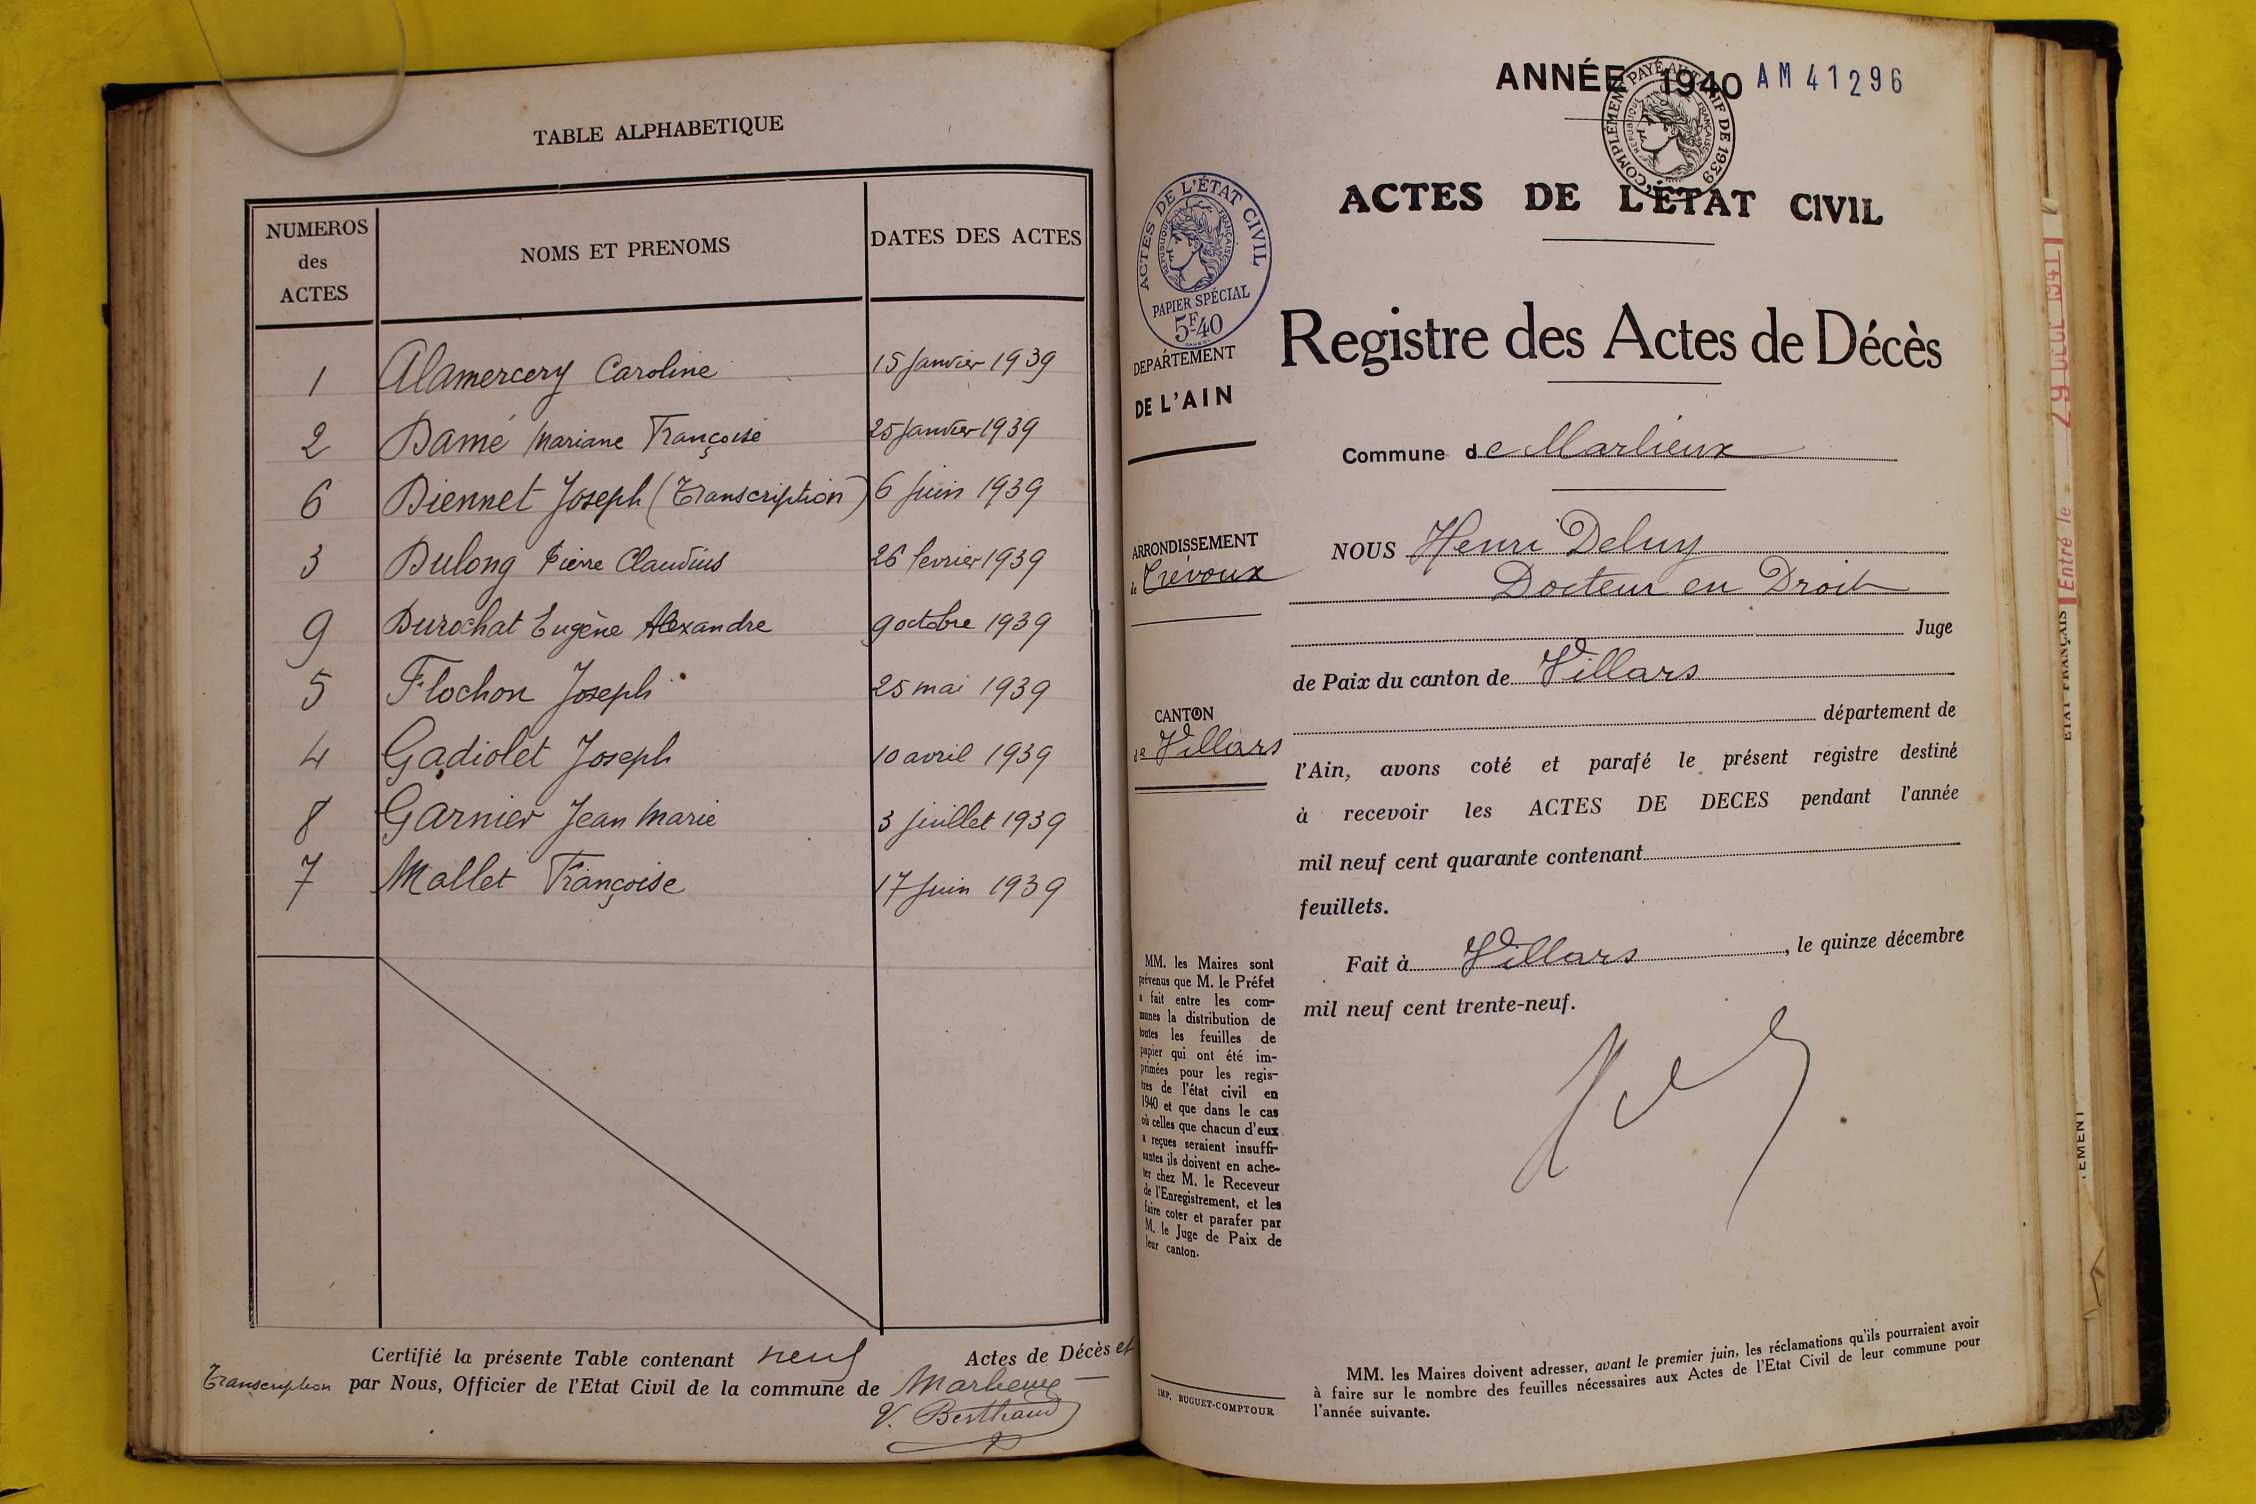 TABLE ALPHABETIQUE
NUMEROS
des
ACTES
NOMS ET PRENOMS
DATES DES ACTES
1 Alamercery Caroline 15 janvier 1939
2 Damé Mariane Françoise 25 janvier 1939
6 Diennet Joseph (Transcription) 6 juin 1939
3 Dulong Pierre Claudius 26 fevrier 1939
9 Durochat Eugène Alexandre 9 octobre 1939
5 Flochon Joseph 25 mai 1939
4 Gadiolet Joseph 10 avril 1939
8 Garnier Jean Marie 3 juillet 1939
7 Mallet Françoise 17 juin 1939
Certifié la présente Table contenant neuf Actes de Décès et
Transcription par Nous, Officier de l'Etat Civil de la commune de Marlieux
V. Berthaud
ANNÉE 1940 AM 41296
COMPLÉMENT PAYÉ AU TARIF DE 1939
RÉPUBLIQUE FRANÇAISE
ACTES DE L'ÉTAT CIVIL
ACTES DE L'ÉTAT CIVIL
RÉPUBLIQUE FRANÇAISE
PAPIER SPÉCIAL
5F40
DEPARTEMENT
DE L'AIN
ARRONDISSEMENT
de Trévoux
CANTON
de Villars
MM. les Maires sont
prévenus que M. le Préfet
a fait entre les com-
munes la distribution de
toutes les feuilles de
papier qui ont été im-
primées pour les regis-
tres de l'état civil en
1940 et que dans le cas
où celles que chacun d'eux
a reçues seraient insuffi-
santes ils doivent en ache-
ter chez M. le Receveur
de l'Enregistrement, et les
faire coter et parafer par
M. le Juge de Paix de
leur canton.
IMP. BUGUET-COMPTOUR
Registre des Actes de Décès
Commune de Marlieux
NOUS Henri Deluy
Docteur en Droit
Juge
de Paix du canton de Villars
département de
l'Ain, avons coté et parafé le présent registre destiné
à recevoir les ACTES DE DECES pendant l'année
mil neuf cent quarante contenant
feuillets.
Fait à Villars, le quinze décembre
mil neuf cent trente-neuf.
MM. les Maires doivent adresser, avant le premier juin, les réclamations qu'ils pourraient avoir
à faire sur le nombre des feuilles nécessaires aux Actes de l'Etat Civil de leur commune pour
l'année suivante.
ETAT FRANÇAIS
Entré le